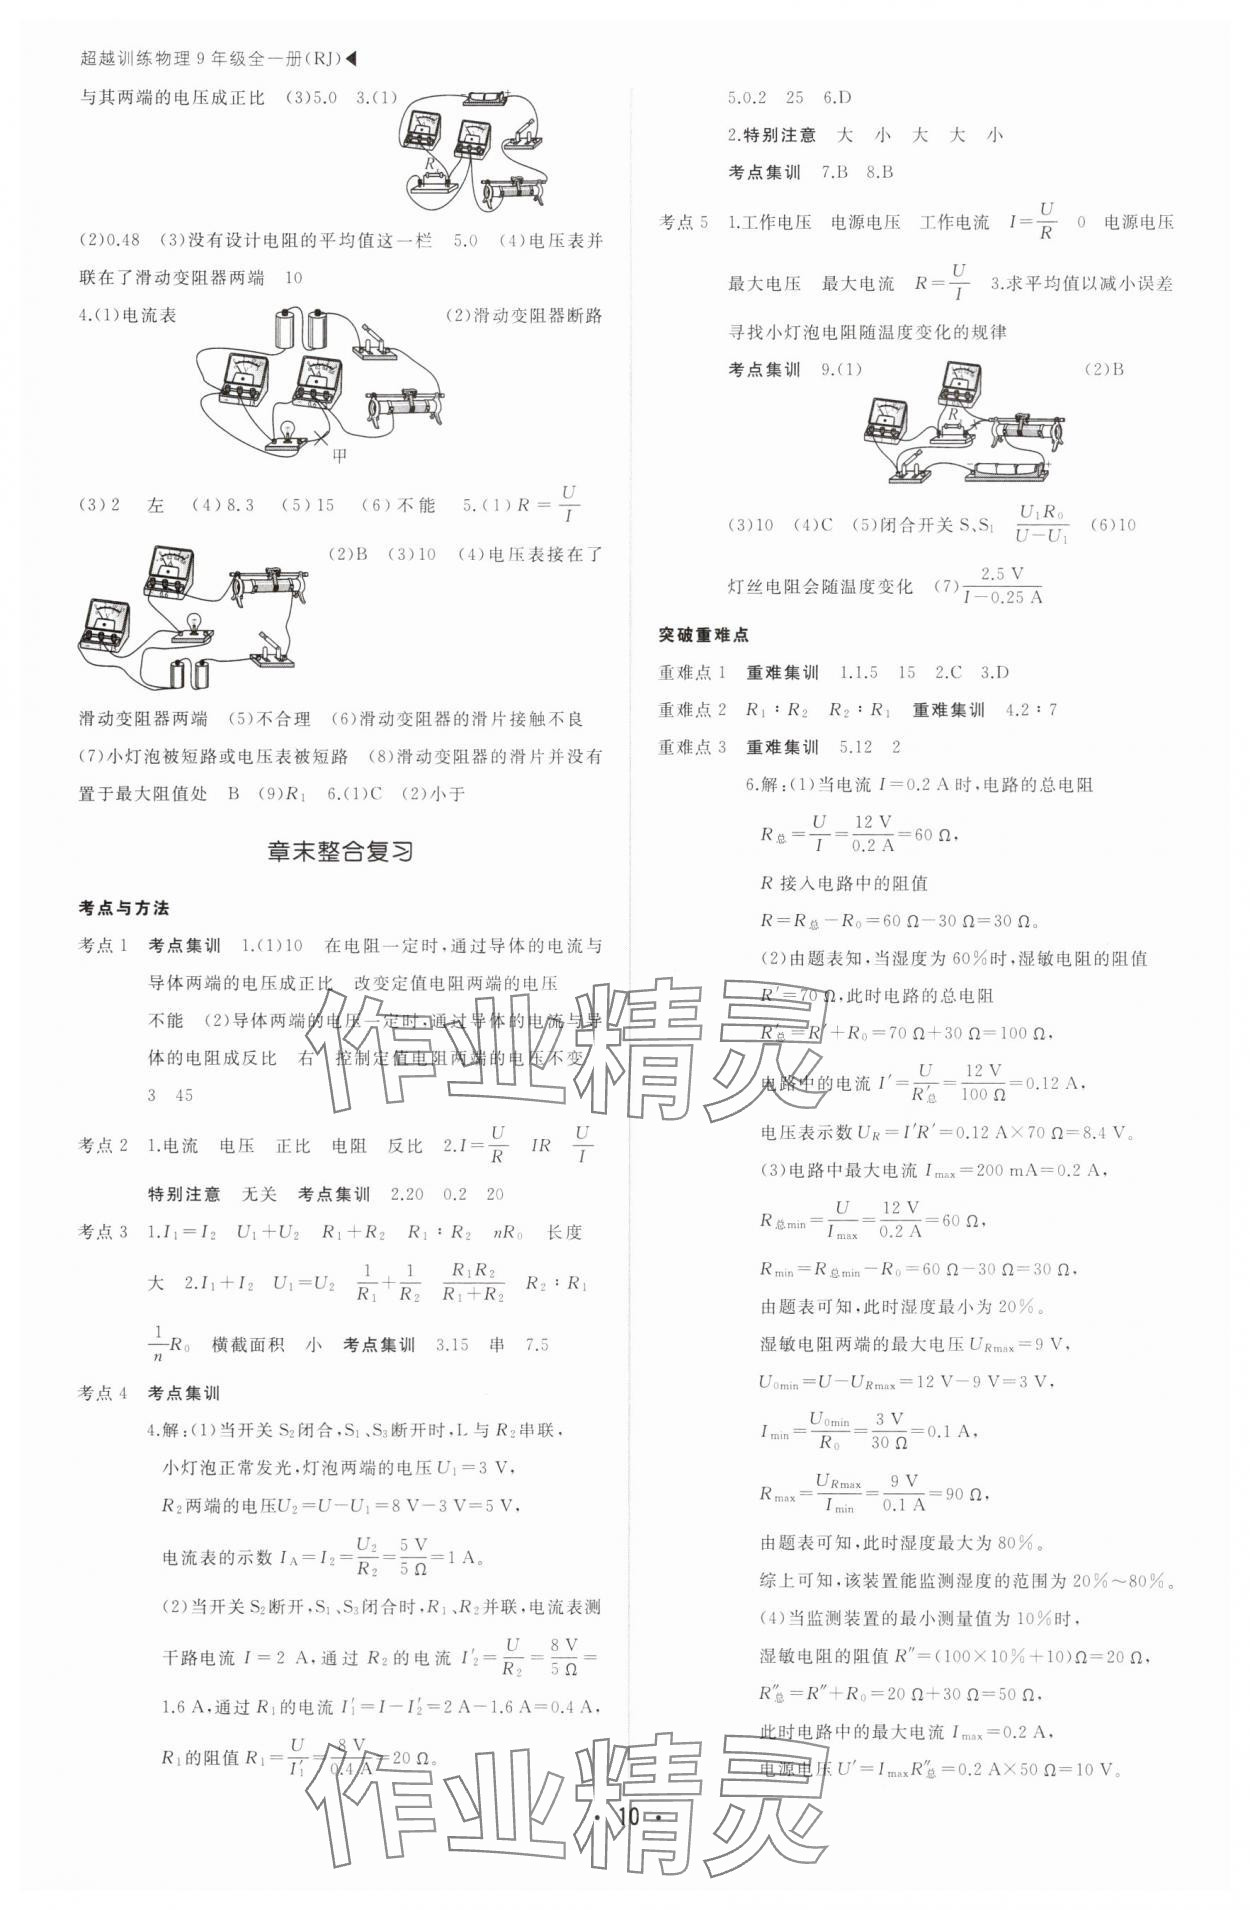 超越训练物理9年级全一册(RJ)◀
与其两端的电压成正比 (3)5.0 3.(1)
R
(2)0.48 (3)没有设计电阻的平均值这一栏 5.0 (4)电压表并
联在了滑动变阻器两端 10
4.(1)电流表 (2)滑动变阻器断路
甲
(3)2 左 (4)8.3 (5)15 (6)不能 5.(1)R=U/I
(2)B (3)10 (4)电压表接在了
滑动变阻器两端 (5)不合理 (6)滑动变阻器的滑片接触不良
(7)小灯泡被短路或电压表被短路 (8)滑动变阻器的滑片并没有
置于最大阻值处 B (9)R₁ 6.(1)C (2)小于
章末整合复习
考点与方法
考点1 考点集训 1.(1)10 在电阻一定时,通过导体的电流与
导体两端的电压成正比 改变定值电阻两端的电压
不能 (2)导体两端的电压一定时,通过导体的电流与导
体的电阻成反比 右 控制定值电阻两端的电压不变
3 45
考点2 1.电流 电压 正比 电阻 反比 2.I=U/R IR U/I
特别注意 无关 考点集训 2.20 0.2 20
考点3 1.I₁=I₂ U₁+U₂ R₁+R₂ R₁∶R₂ nR₀ 长度
大 2.I₁+I₂ U₁=U₂ 1/R₁+1/R₂ R₁R₂/(R₁+R₂) R₂∶R₁
1/n R₀ 横截面积 小 考点集训 3.15 串 7.5
考点4 考点集训
4.解:(1)当开关S₂闭合,S₁、S₃断开时,L与R₂串联,
小灯泡正常发光,灯泡两端的电压U₁=3 V,
R₂两端的电压U₂=U-U₁=8 V-3 V=5 V,
电流表的示数I_A=I₂=U₂/R₂=5 V/5 Ω=1 A。
(2)当开关S₂断开,S₁、S₃闭合时,R₁、R₂并联,电流表测
干路电流I=2 A,通过R₂的电流I′₂=U/R₂=8 V/5 Ω=
1.6 A,通过R₁的电流I′₁=I-I′₂=2 A-1.6 A=0.4 A,
R₁的阻值R₁=U/I′₁=8 V/0.4 A=20 Ω。
5.0.2 25 6.D
2.特别注意 大 小 大 大 小
考点集训 7.B 8.B
考点5 1.工作电压 电源电压 工作电流 I=U/R 0 电源电压
最大电压 最大电流 R=U/I 3.求平均值以减小误差
寻找小灯泡电阻随温度变化的规律
考点集训 9.(1) (2)B
R
(3)10 (4)C (5)闭合开关S、S₁ U₁R₀/(U-U₁) (6)10
灯丝电阻会随温度变化 (7)2.5 V/(I-0.25 A)
突破重难点
重难点1 重难集训 1.1.5 15 2.C 3.D
重难点2 R₁∶R₂ R₂∶R₁ 重难集训 4.2∶7
重难点3 重难集训 5.12 2
6.解:(1)当电流I=0.2 A时,电路的总电阻
R总=U/I=12 V/0.2 A=60 Ω,
R接入电路中的阻值
R=R总-R₀=60 Ω-30 Ω=30 Ω。
(2)由题表知,当湿度为60%时,湿敏电阻的阻值
R′=70 Ω,此时电路的总电阻
R′总=R′+R₀=70 Ω+30 Ω=100 Ω,
电路中的电流I′=U/R′总=12 V/100 Ω=0.12 A,
电压表示数U_R=I′R′=0.12 A×70 Ω=8.4 V。
(3)电路中最大电流I_max=200 mA=0.2 A,
R总min=U/I_max=12 V/0.2 A=60 Ω,
R_min=R总min-R₀=60 Ω-30 Ω=30 Ω,
由题表可知,此时湿度最小为20%。
湿敏电阻两端的最大电压U_Rmax=9 V,
U_0min=U-U_Rmax=12 V-9 V=3 V,
I_min=U_0min/R₀=3 V/30 Ω=0.1 A,
R_max=U_Rmax/I_min=9 V/0.1 A=90 Ω,
由题表可知,此时湿度最大为80%。
综上可知,该装置能监测湿度的范围为20%~80%。
(4)当监测装置的最小测量值为10%时,
湿敏电阻的阻值R″=(100×10%+10)Ω=20 Ω,
R″总=R″+R₀=20 Ω+30 Ω=50 Ω,
此时电路中的最大电流I_max=0.2 A,
电源电压U′=I_max R″总=0.2 A×50 Ω=10 V。
作业精灵
作业精灵
·10·